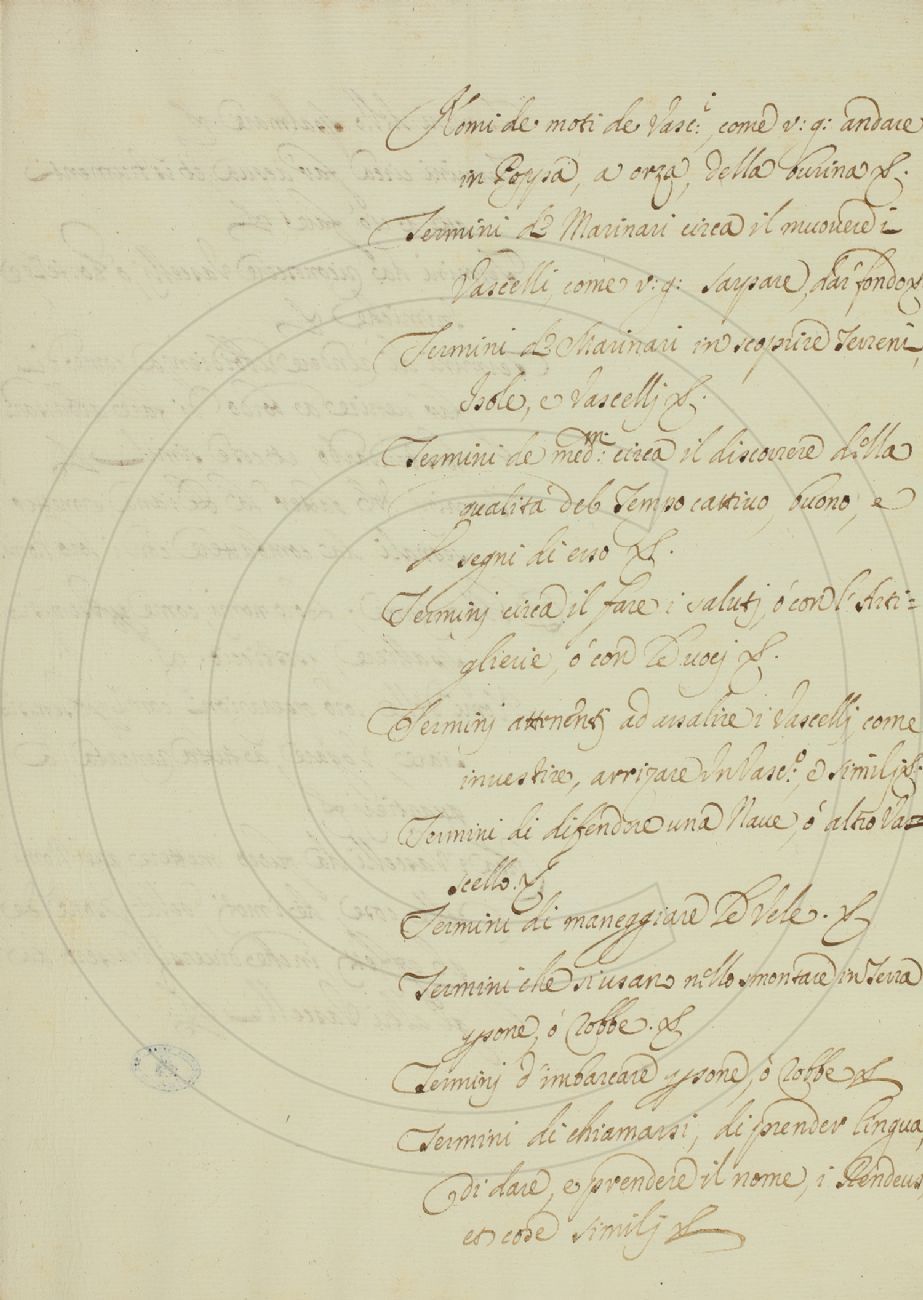 Nomi de moti de Vasc:i, come v: g: andare
in Poppa, a orza, della burina &.
Termini de Marinari circa il muovere i
Vascelli, come v: g: sarpare, dar fondo &
Termini de Marinari in scoprire Terreni,
Isole, e Vascellj &.
Termini de med:mi circa il discorrere della
qualità del Tempo cattivo, buono, e
segni di esso &.
Terminj circa il fare i salutj, ó con l'Arti=
glierie, ó con le vocj &.
Terminj attenentj ad assalire i Vascellj, come
investire, arrizare un Vasc:o, e similj &.
Termini di difendere una Nave, ó altro Va=
scello. &
Termini di maneggiare le Vele. &
Termini che si usano nello smontare in Terra
persone, ó robbe. &
Terminj d'imbarcare persone, ó robbe &
Termini di chiamarsi, di prender lingua,
di dare, e prendere il nome, i Rendeus,
et cose similj &